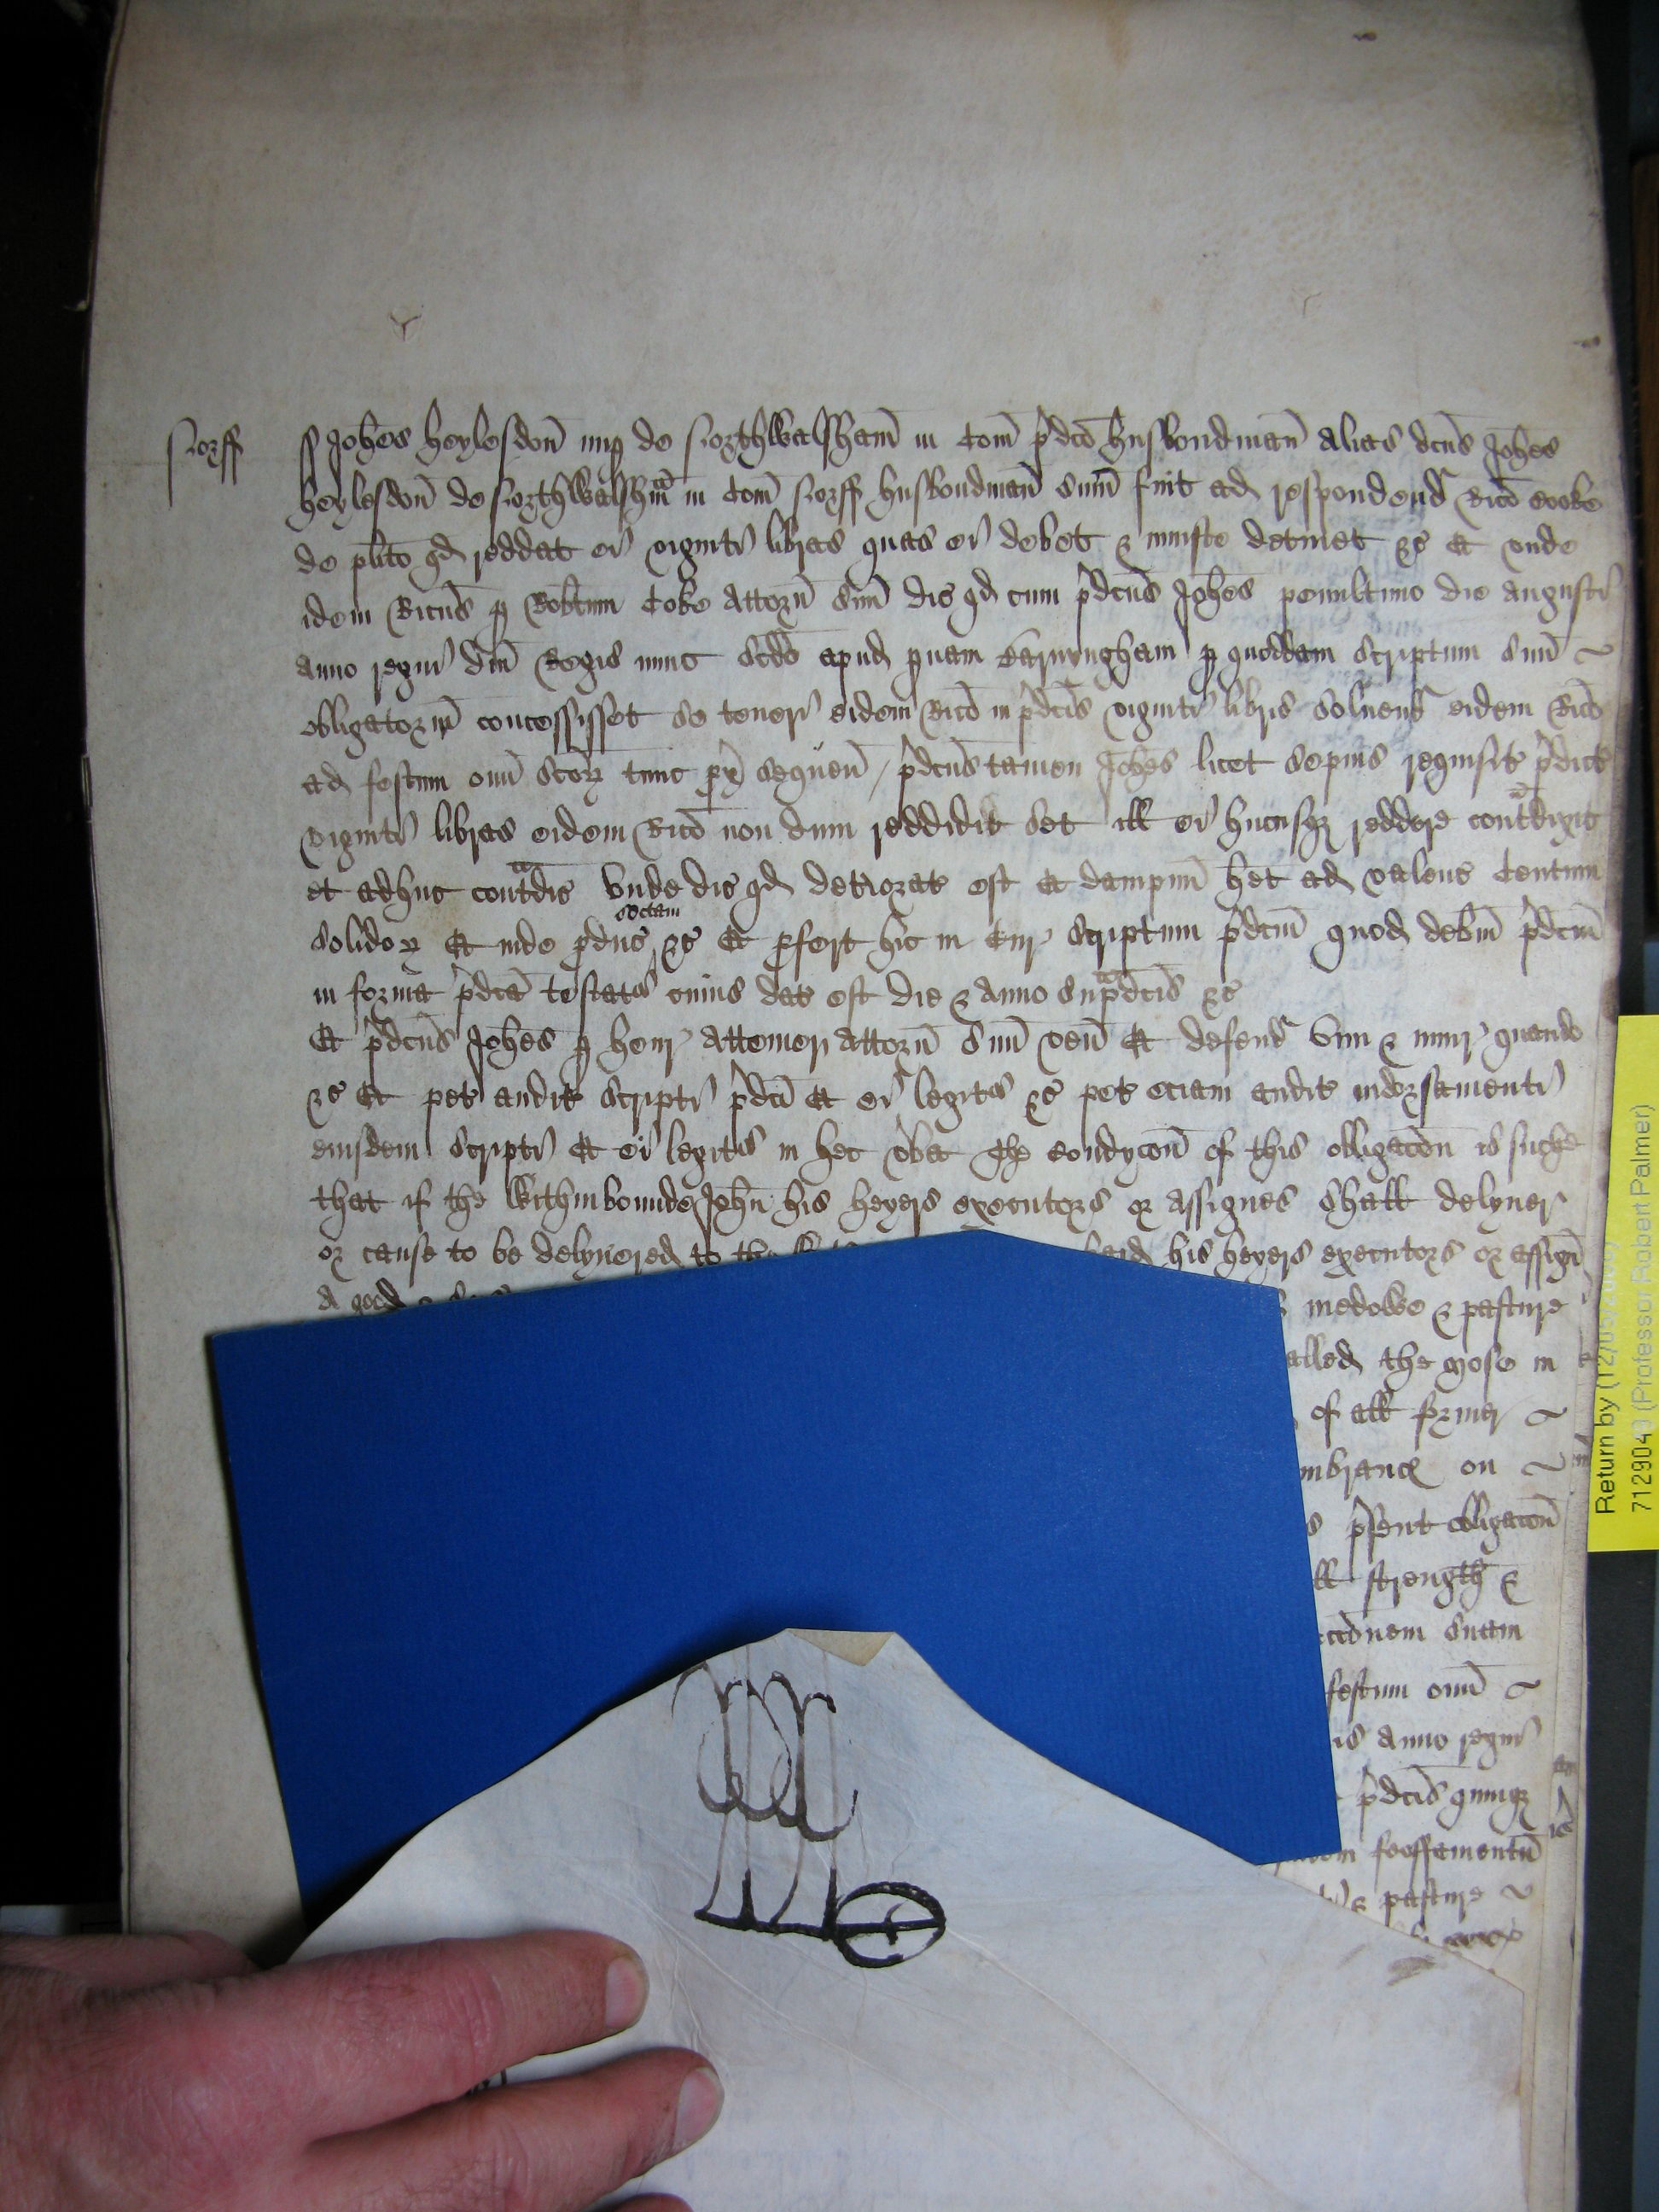 Norff
ss Johes Heylesdon nup de Northwalsham in Com pdco husbondman alias dcus Johes
Heylesdon de Northwalsham in Com Norff husbondman sum fuit ad respondend Rico Cooke
de plito qd reddat ei viginti libras quas ei debet & iniuste detinet &c Et unde
idem Ricus p Robtum Coke attorn suu dic qd cum pdcus Johes penultimo die Augusti
anno regni dni Regis nunc scdo apud puam Barnyngham p quoddam scriptum suu
obligatoriu concessisset se teneri eidem Rico in pdcis viginti libris solvend eidem Rico
ad festum omi scor tunc px sequen pdcus tamen Johes licet sepius requisit pdict
viginti libras eidem Rico non dum reddidit set ill ei hucusq reddere contradixit
et adhuc contradic Unde dic qd deteriorat est Et dampnu het ad valenc Centum
solidor Et inde pduc sectam &c Et pfert hic in Cur scriptum pdcm quod debm pdcm
in forma pdca testat cuius dat est die & anno supradcis &c
Et pdcus Johes p Henr attorn suu ven Et defend vim & iniur quando
&c Et pet audit scripti pdci Et ei legit &c pet eciam audit indorsamenti
eiusdem scripti Et ei legit in hec vba The Condycon of this obligacon is suche
that if the withinbounde John his heyers executors or assignes shall delyver
or cause to be delyvered to the his heyers executors or assign
A good medowe & pasture
called the in
of all former
on
psent obligacon
strength &
suam
festum omi
anno regni
pdcis
feoffamentu
& pasture
Return by (12/05/
712904 (Professor Robert Palmer)